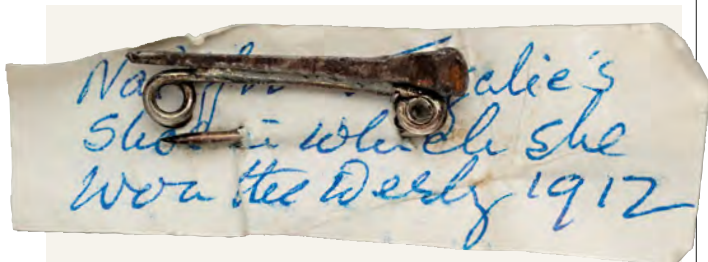 Tagalie's
Shoe in which she
won the Derby 1912